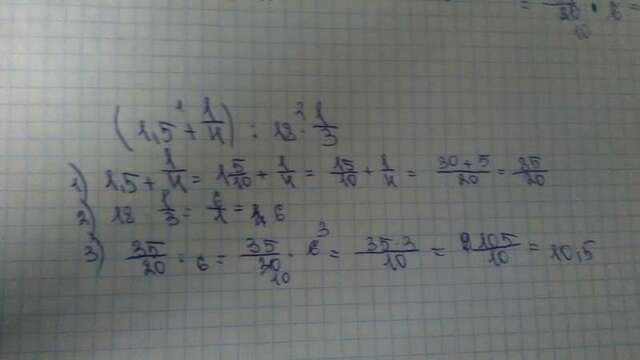 = /20 10 · 6 =
(1,5 + 1/4) : 18 · 1/3
1) 1,5 + 1/4 = 1 5/10 + 1/4 = 15/10 + 1/4 = 30+5/20 = 35/20
2) 18 1/3 = 6/1 = 6
3) 35/20 : 6 = 35/20 10 · 6 3 = 35·3/10 = 105/10 = 10,5